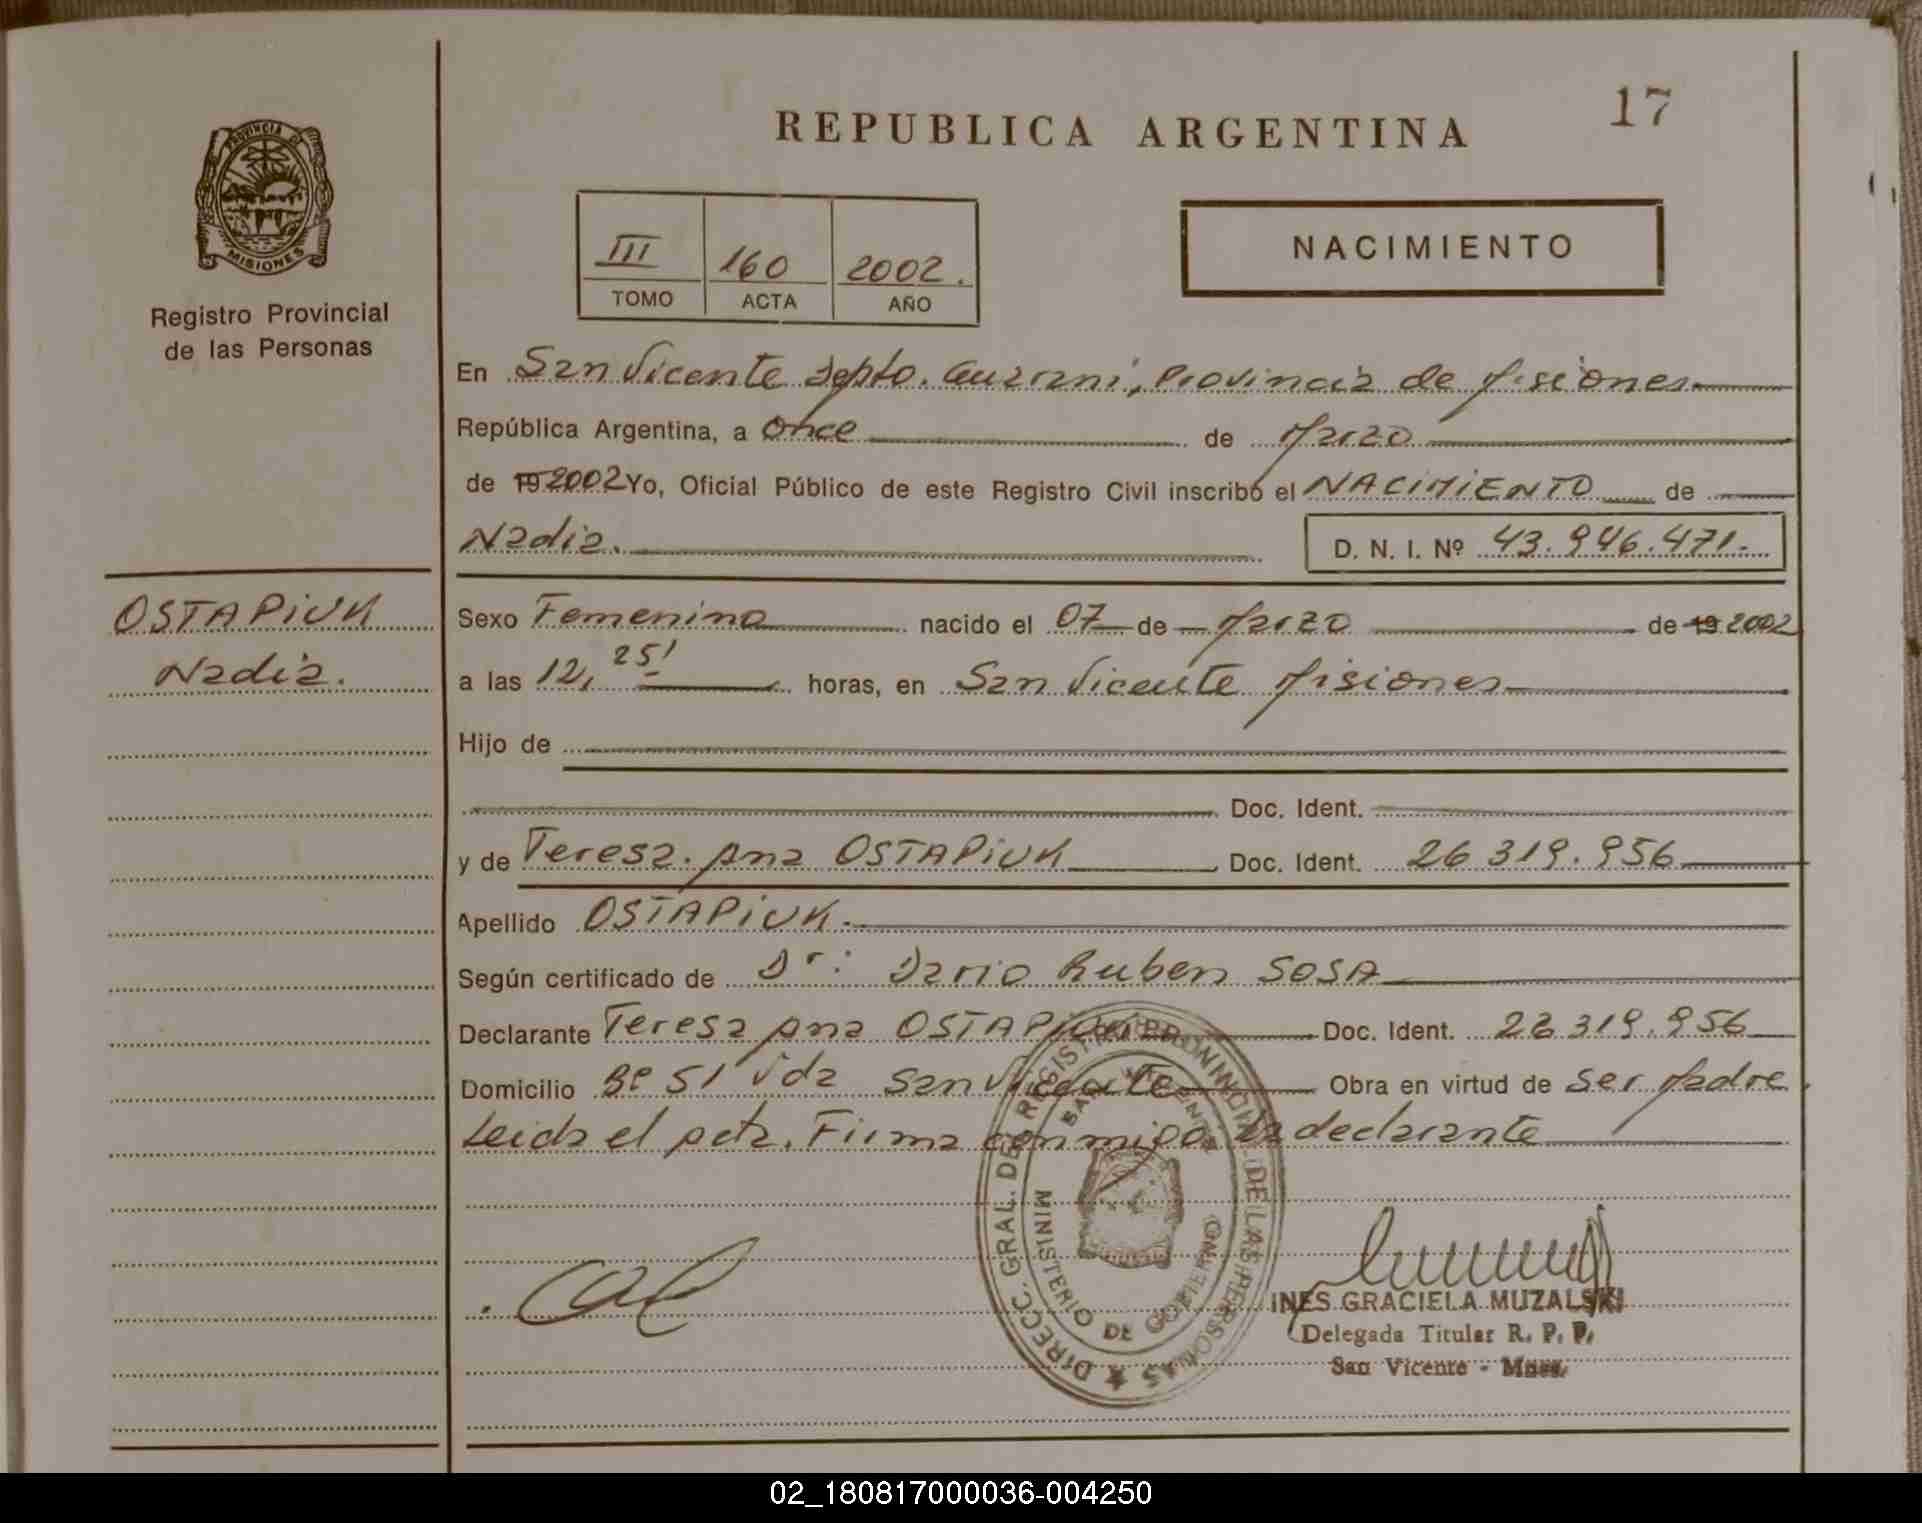 17
REPUBLICA ARGENTINA
PROVINCIA DE
MISIONES
Registro Provincial
de las Personas
III 160 2002.
TOMO ACTA AÑO
NACIMIENTO
En San Vicente Depto. Guarani, Provincia de Misiones
República Argentina, a Once de Marzo
de 19 2002 Yo, Oficial Público de este Registro Civil inscribo el NACIMIENTO de
Nadia. D. N. I. Nº 43.946.471.
OSTAPIUK
Nadia.
Sexo Femenino nacido el 07 de Marzo de 19 2002
a las 12,25' horas, en San Vicente Misiones
Hijo de
Doc. Ident.
y de Teresa Ana OSTAPIUK Doc. Ident. 26 319.956
Apellido OSTAPIUK.
Según certificado de Dr: Dario Ruben SOSA
Declarante Teresa Ana OSTAPIUK Doc. Ident. 26 319.956
Domicilio Bº 51 Vda San Vicente Obra en virtud de ser Madre.
Leida el Acta. Firma conmigo la declarante
DIRECC. GRAL. DEL REGISTRO PROVINCIAL DE LAS PERSONAS
SAN VICENTE
MINISTERIO DE GOBIERNO
INES GRACIELA MUZALSKI
Delegada Titular R. P. P.
San Vicente - Mnes.
02_180817000036-004250